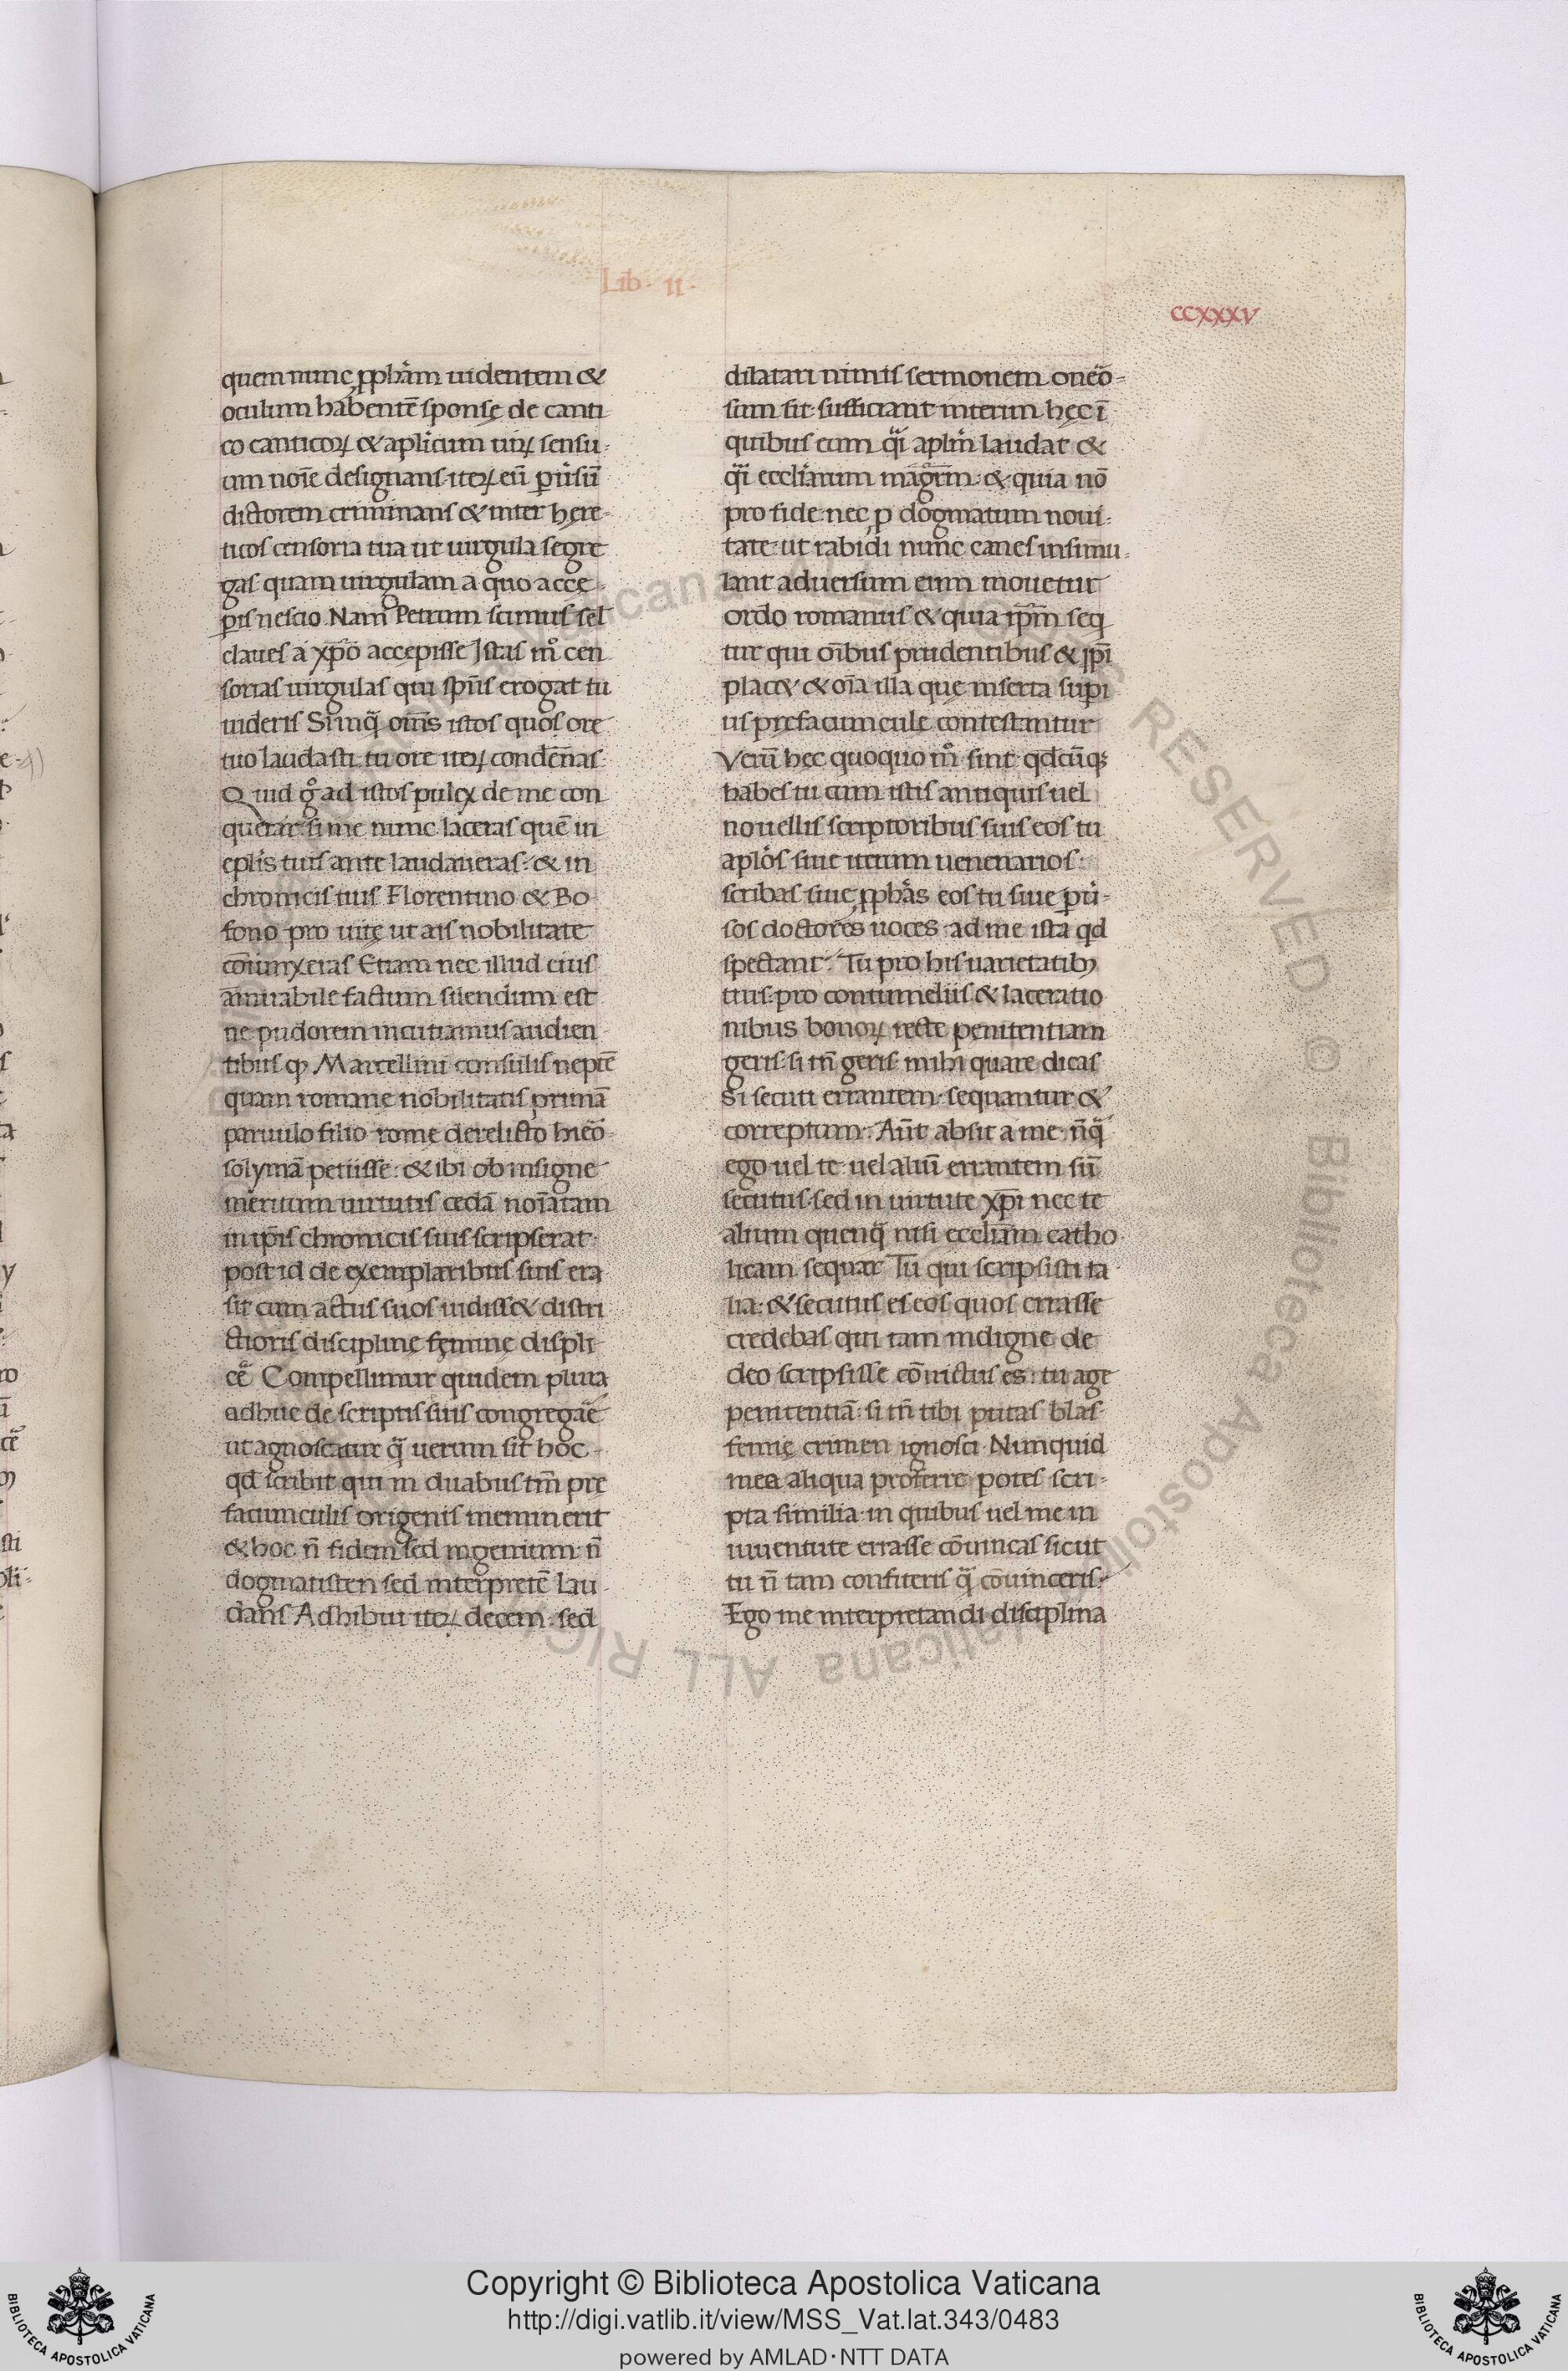 Lib · II ·
CCXXXV
quem nunc ꝓph̃am uidentem &
oculum habentẽ sponsę de canti
co canticoꝝ & apl̃icum uiꝝ sensu-
um noĩe designans iteꝝ eũ ꝑuĩsũ
dictorem criminans & inter here-
ticos censoria tua ut uirgula segre
gas quam uirgulam a quo acce-
pis nescio Nam Petrum scimus sẽl
claues a xp̃o accepisse Istas m̊ cen
sorias uirgulas qui sp̃ns erogat tu
uideris Sĩ inq̃ om̃s istos quos ore
tuo laudasti tu ore iteꝝ condẽnas
Quid g̊ ad istos pulex de me con
querar si me nunc laceras quẽ in
epl̃is tuis ante laudaueras & in
chronicis tuis Florentino & Bo
sono pro uitę ut ais nobilitate
coniunxeras Etiam nec illud eius
am̃irabile factum silendum est
ne pudorem incutiamus audien
tibus qꝫ Marcellini consulis neptẽ
quam romane nobilitatis primã
paruulo filio rome derelicto hieõ
solymã petiisse & ibi ob insigne
meritum uirtutis teclã noĩatam
in ip̃is chronicis suis scripserat
post id de exemplaribus suis era
sit cum actus suos uidiss& distri
ctioris disciplinę feminę displi
cẽ Compellimur quidem plura
adhuc de scriptis suis congregãe
ut agnoscatur q̃ uerum sit hoc
qd scribit qui in duabus tm̃ pre
fatiunculis origenis meminerit
& hoc ñ fidem sed ingenium ñ
dogmatisten sed interpretẽ lau-
dans Adhibui iteꝝ decem sed
dilatari nimis sermonem oneõ-
sum sit sufficiant interim hęc ĩ
quibus eum q̃i apl̃m laudat &
q̃i eccl̃iarum magr̃m & quia nõ
pro fide nec ꝑ dogmatum noui-
tate ut rabidi nunc canes insimu-
lant aduersum eum mouetur
ordo romanus & quia ip̃m seq̃
tur qui oĩbus prudentibus & ip̃i
plac& & oĩa illa quę inserta supi
us prefatiuncule contestantur
Verũ hec quoquo m̊ sint qdcũqꝫ
habes tu cum istis antiquis uel
nouellis scriptoribus siue eos tu
apl̃os siue iterum uenenarios
scribas siue ꝓph̃as eos tu siue ꝑuĩ-
sos doctores uoces ad me ista qd
spectant Tu pro his uarietatibꝫ
tuis pro contumeliis & laceratio
nibus bonoꝝ recte penitentiam
geris si tñ geris mihi quare dicas
Si secuti errantem sequantur &
correptum Aũt absit a me ñq̃
ego uel te uel aliũ errantem sũ
secutus sed in uirtute xp̃i nec te
alium quenq̃ nisi eccl̃iam catho-
licam sequar Tu qui scripsisti ta
lia & secutus es eos quos errasse
credebas qui tam indigne de
deo scripsisse cõuictus es tu age
penitentiã si tñ tibi putas blas-
femię crimen ignosci Nunquid
mea aliqua proferre potes scri-
pta similia in quibus uel me in
iuuentute errasse cõuincas sicut
tu ñ tam confiteris q̃ cõuinceris
Ego me interpretandi disciplina
© Biblioteca Apostolica Vaticana ALL RIGHTS RESERVED
Copyright © Biblioteca Apostolica Vaticana
http://digi.vatlib.it/view/MSS_Vat.lat.343/0483
powered by AMLAD·NTT DATA
BIBLIOTECA APOSTOLICA VATICANA
BIBLIOTECA APOSTOLICA VATICANA